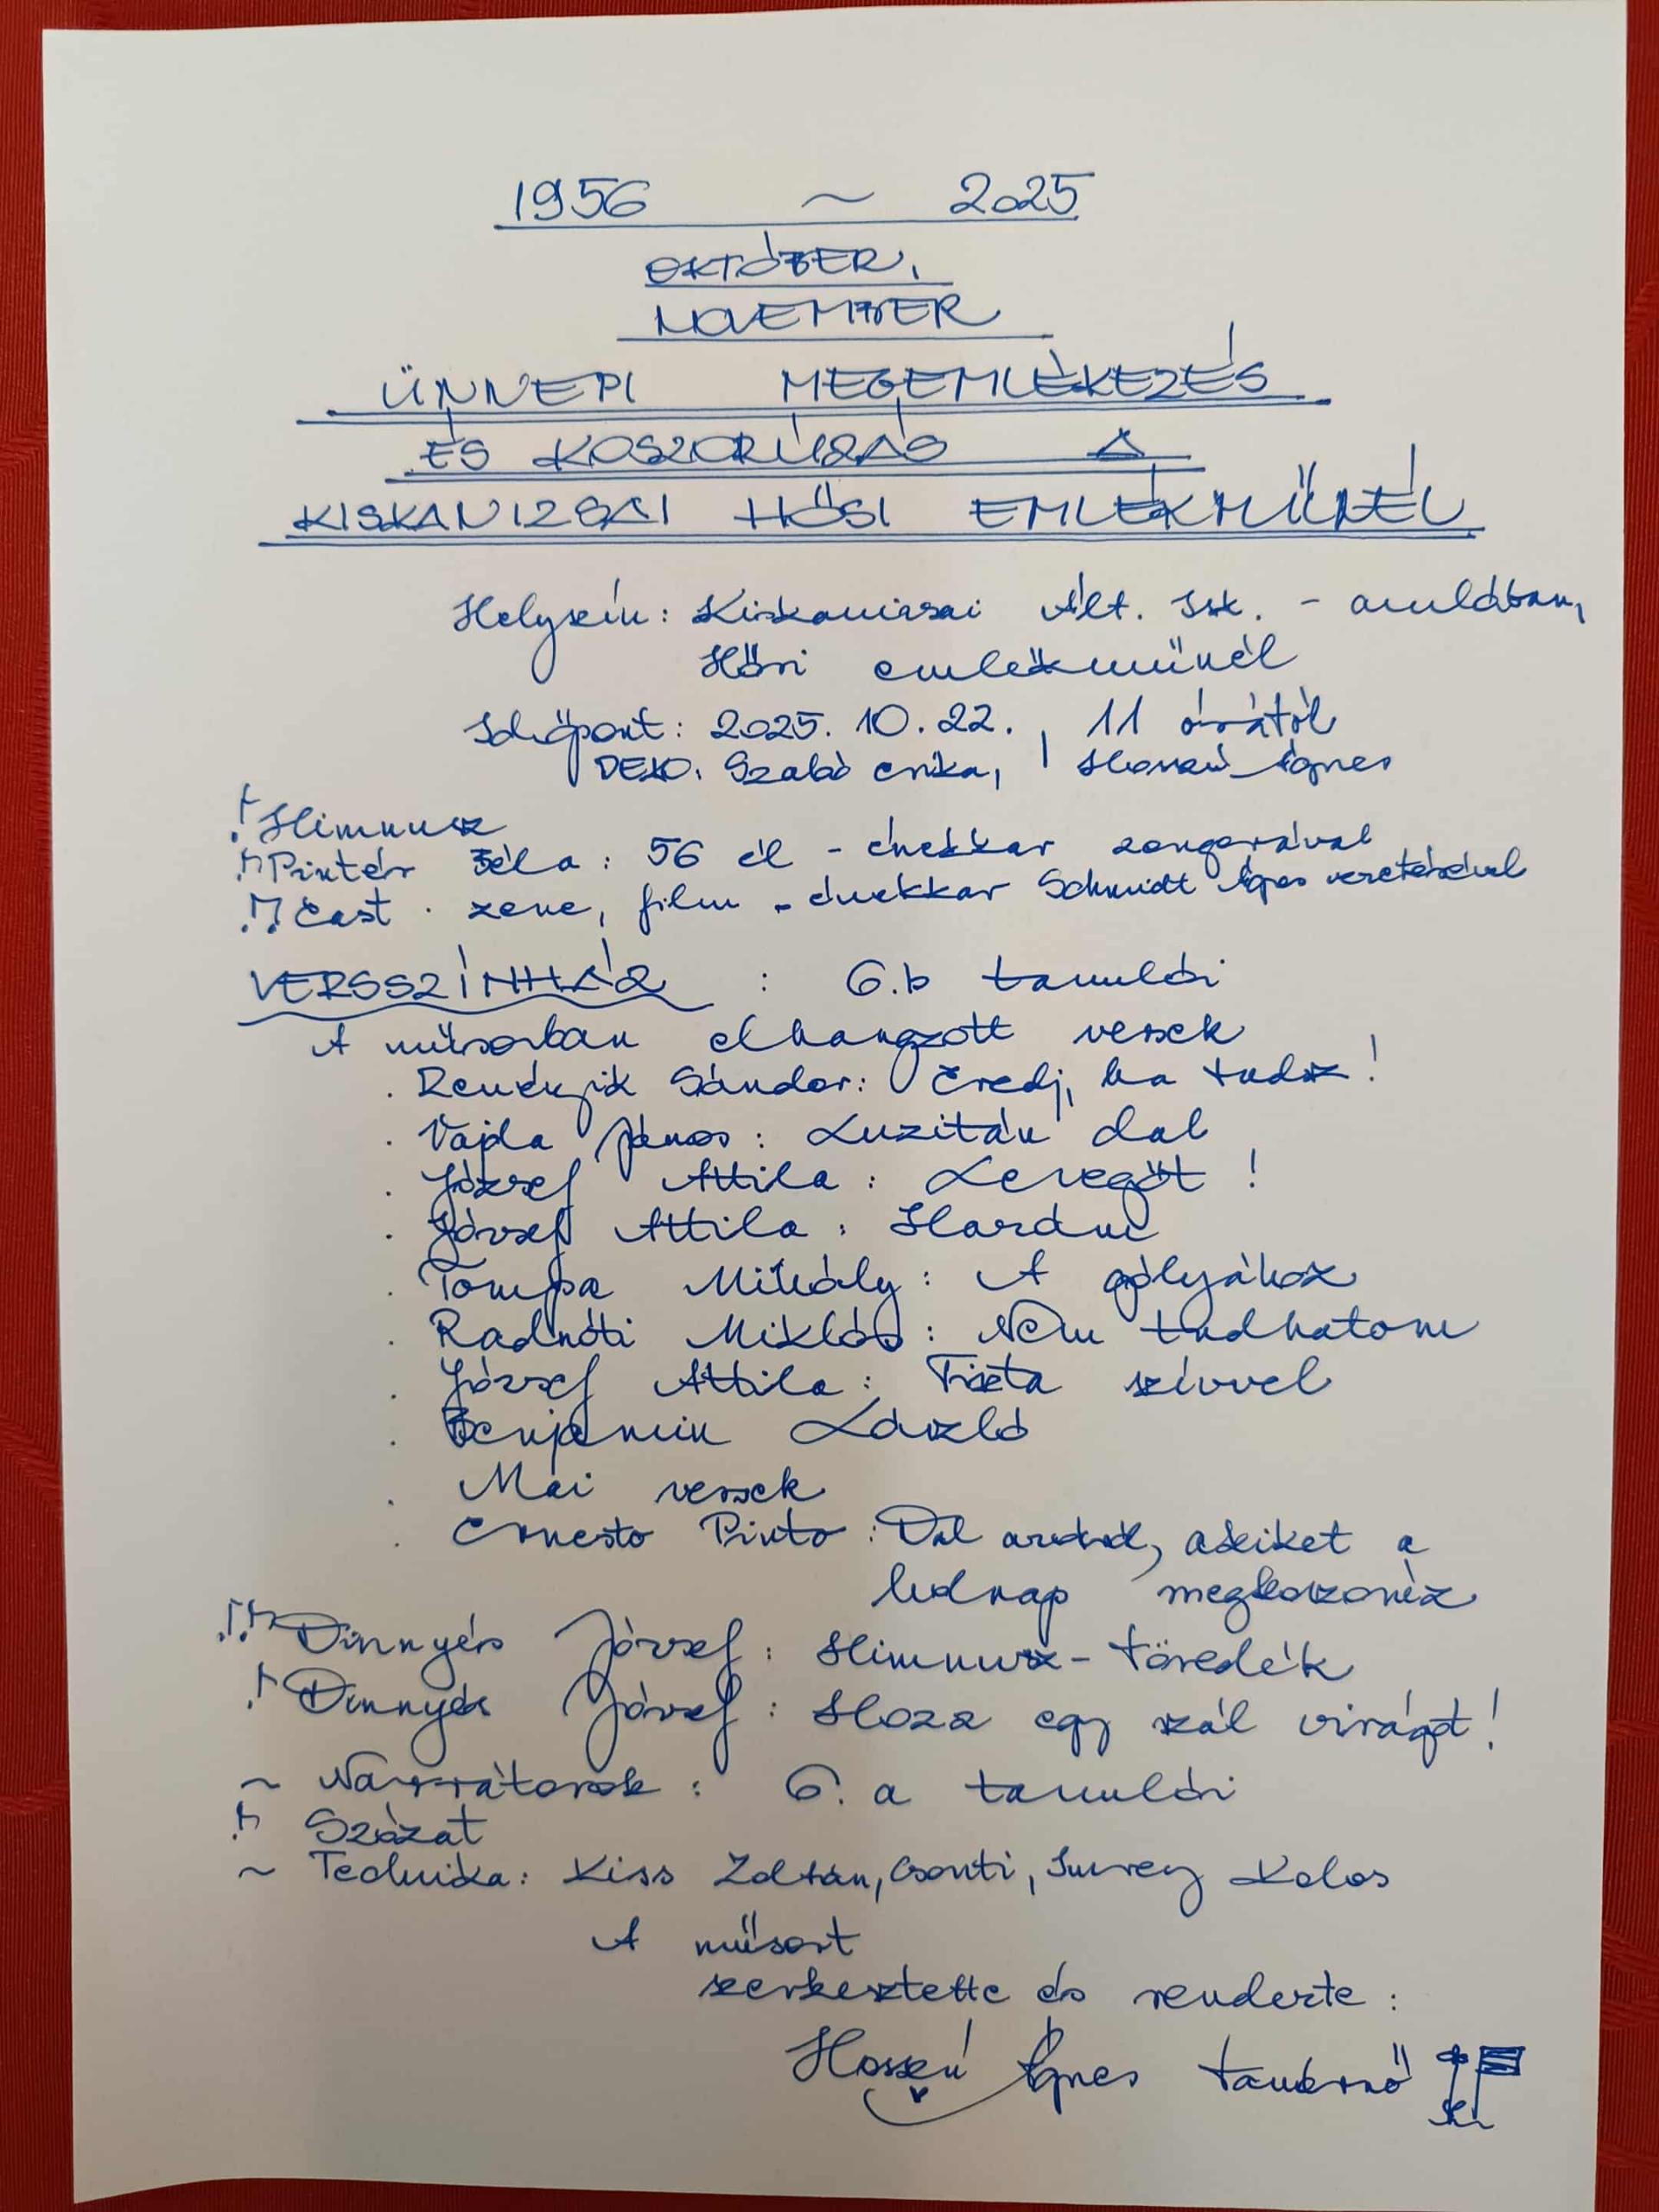 1956 ~ 2025
OKTÓBER,
NOVEMBER
ÜNNEPI MEGEMLÉKEZÉS
ÉS KOSZORÚZÁS A
KISKANIZSAI HŐSI EMLÉKMŰNÉL
Helyszín: Kiskanizsai Ált. Isk. - aulában,
Hősi emlékműnél
Időpont: 2025. 10. 22., 11 órától
DEKO: Szabó Erika, Ágnes
Himnusz
Pintér Béla: 56 él - énekkar zongorával
East. zene, film - énekkar Schmidt Ágnes vezetésével
VERSSZÍNHÁZ : 6.b tanulói
A műsorban elhangzott versek
. Reményik Sándor: Eredj, ha tudsz!
. Vajda János: Luzitán dal
. József Attila: Levegőt!
. József Attila: Hazám
. Tompa Mihály: A gólyához
. Radnóti Miklós: Nem tudhatom
. József Attila: Tiszta szívvel
. Benjamin László
. Mai versek
. Ernesto Pinto: Dal azokról, akiket a
holnap
Dinnyés József: Himnusz-töredék
Dinnyés József: Hozz egy szál virágot!
~ Narrátorok: 6. a tanulói
Szózat
~ Technika: Kiss Zoltán, Csonti, Imrey Kolos
A műsort
szerkesztette és rendezte:
Ágnes tanárnő